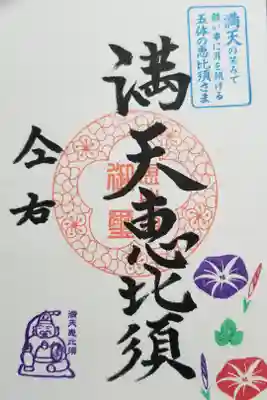 満天の笑みで
願い事に耳を傾ける
五体の恵比須さま
満天恵比須
仝右
御璽
満天恵比須